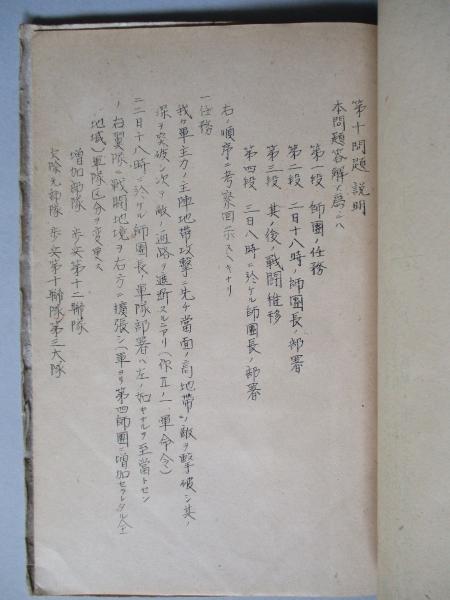 第十問題説明
本問題答解ノ為ニハ
第一段 師團ノ任務
第二段 二日十八時ノ師團長ノ部署
第三段 其ノ後ノ戰鬪推移
第四段 三日八時ニ於ケル師團長ノ部署
右ノ順序ニ考察回示スヘキナリ
一任務
我カ軍主力ノ主陣地帯攻撃ニ先チ當面ノ高地帯ノ敵ヲ撃破シ其ノ
深ヲ突破シ次テ敵ノ退路ヲ遮断スルニアリ(作五ノ一軍命令)
二二日十八時ニ於ケル師團長ノ軍隊部署ハ左ノ如キナルヲ至當トセン
ノ右翼隊ニ戰鬪地境ヲ右方ニ擴張シ(軍ヨリ第四師團ニ増加セラレタル全
地域)軍隊区分ヲ変更ス
増加部隊 歩兵第十二聯隊
欠除先部隊 歩兵第十聯隊第三大隊